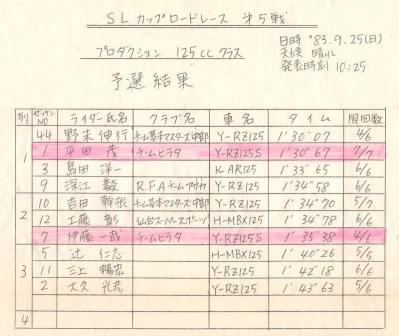 SLカップロードレース 第5戦
プロダクション 125ccクラス
日時 '83.9.25(日)
天候 晴れ
発表時刻 10:25
予選結果
列 ゼッケンNO ライダー氏名 クラブ名 車名 タイム 周回数
1 44 野末 伸行 Y-RZ125 1'30"07 4/6
1 平田 茂 チームヒラタ Y-RZ125S 1'30"67 7/7
3 島田 洋一 K-AR125 1'33"65 6/6
9 深江 毅 Y-RZ125 1'34"58 6/6
2 10 吉田 幹根 Y-RZ125 1'34"70 5/7
12 工藤 彰 仙台スーパースポーツ H-MBX125 1'34"78 6/6
7 伊藤 一哉 チームヒラタ Y-RZ125S 1'35"38 4/6
3 5 辻 仁志 H-MBX125 1'40"26 5/5
11 三上 暢宏 Y-RZ125 1'42"18 6/6
2 大久 光彦 Y-RZ125 1'43"63 5/6
4